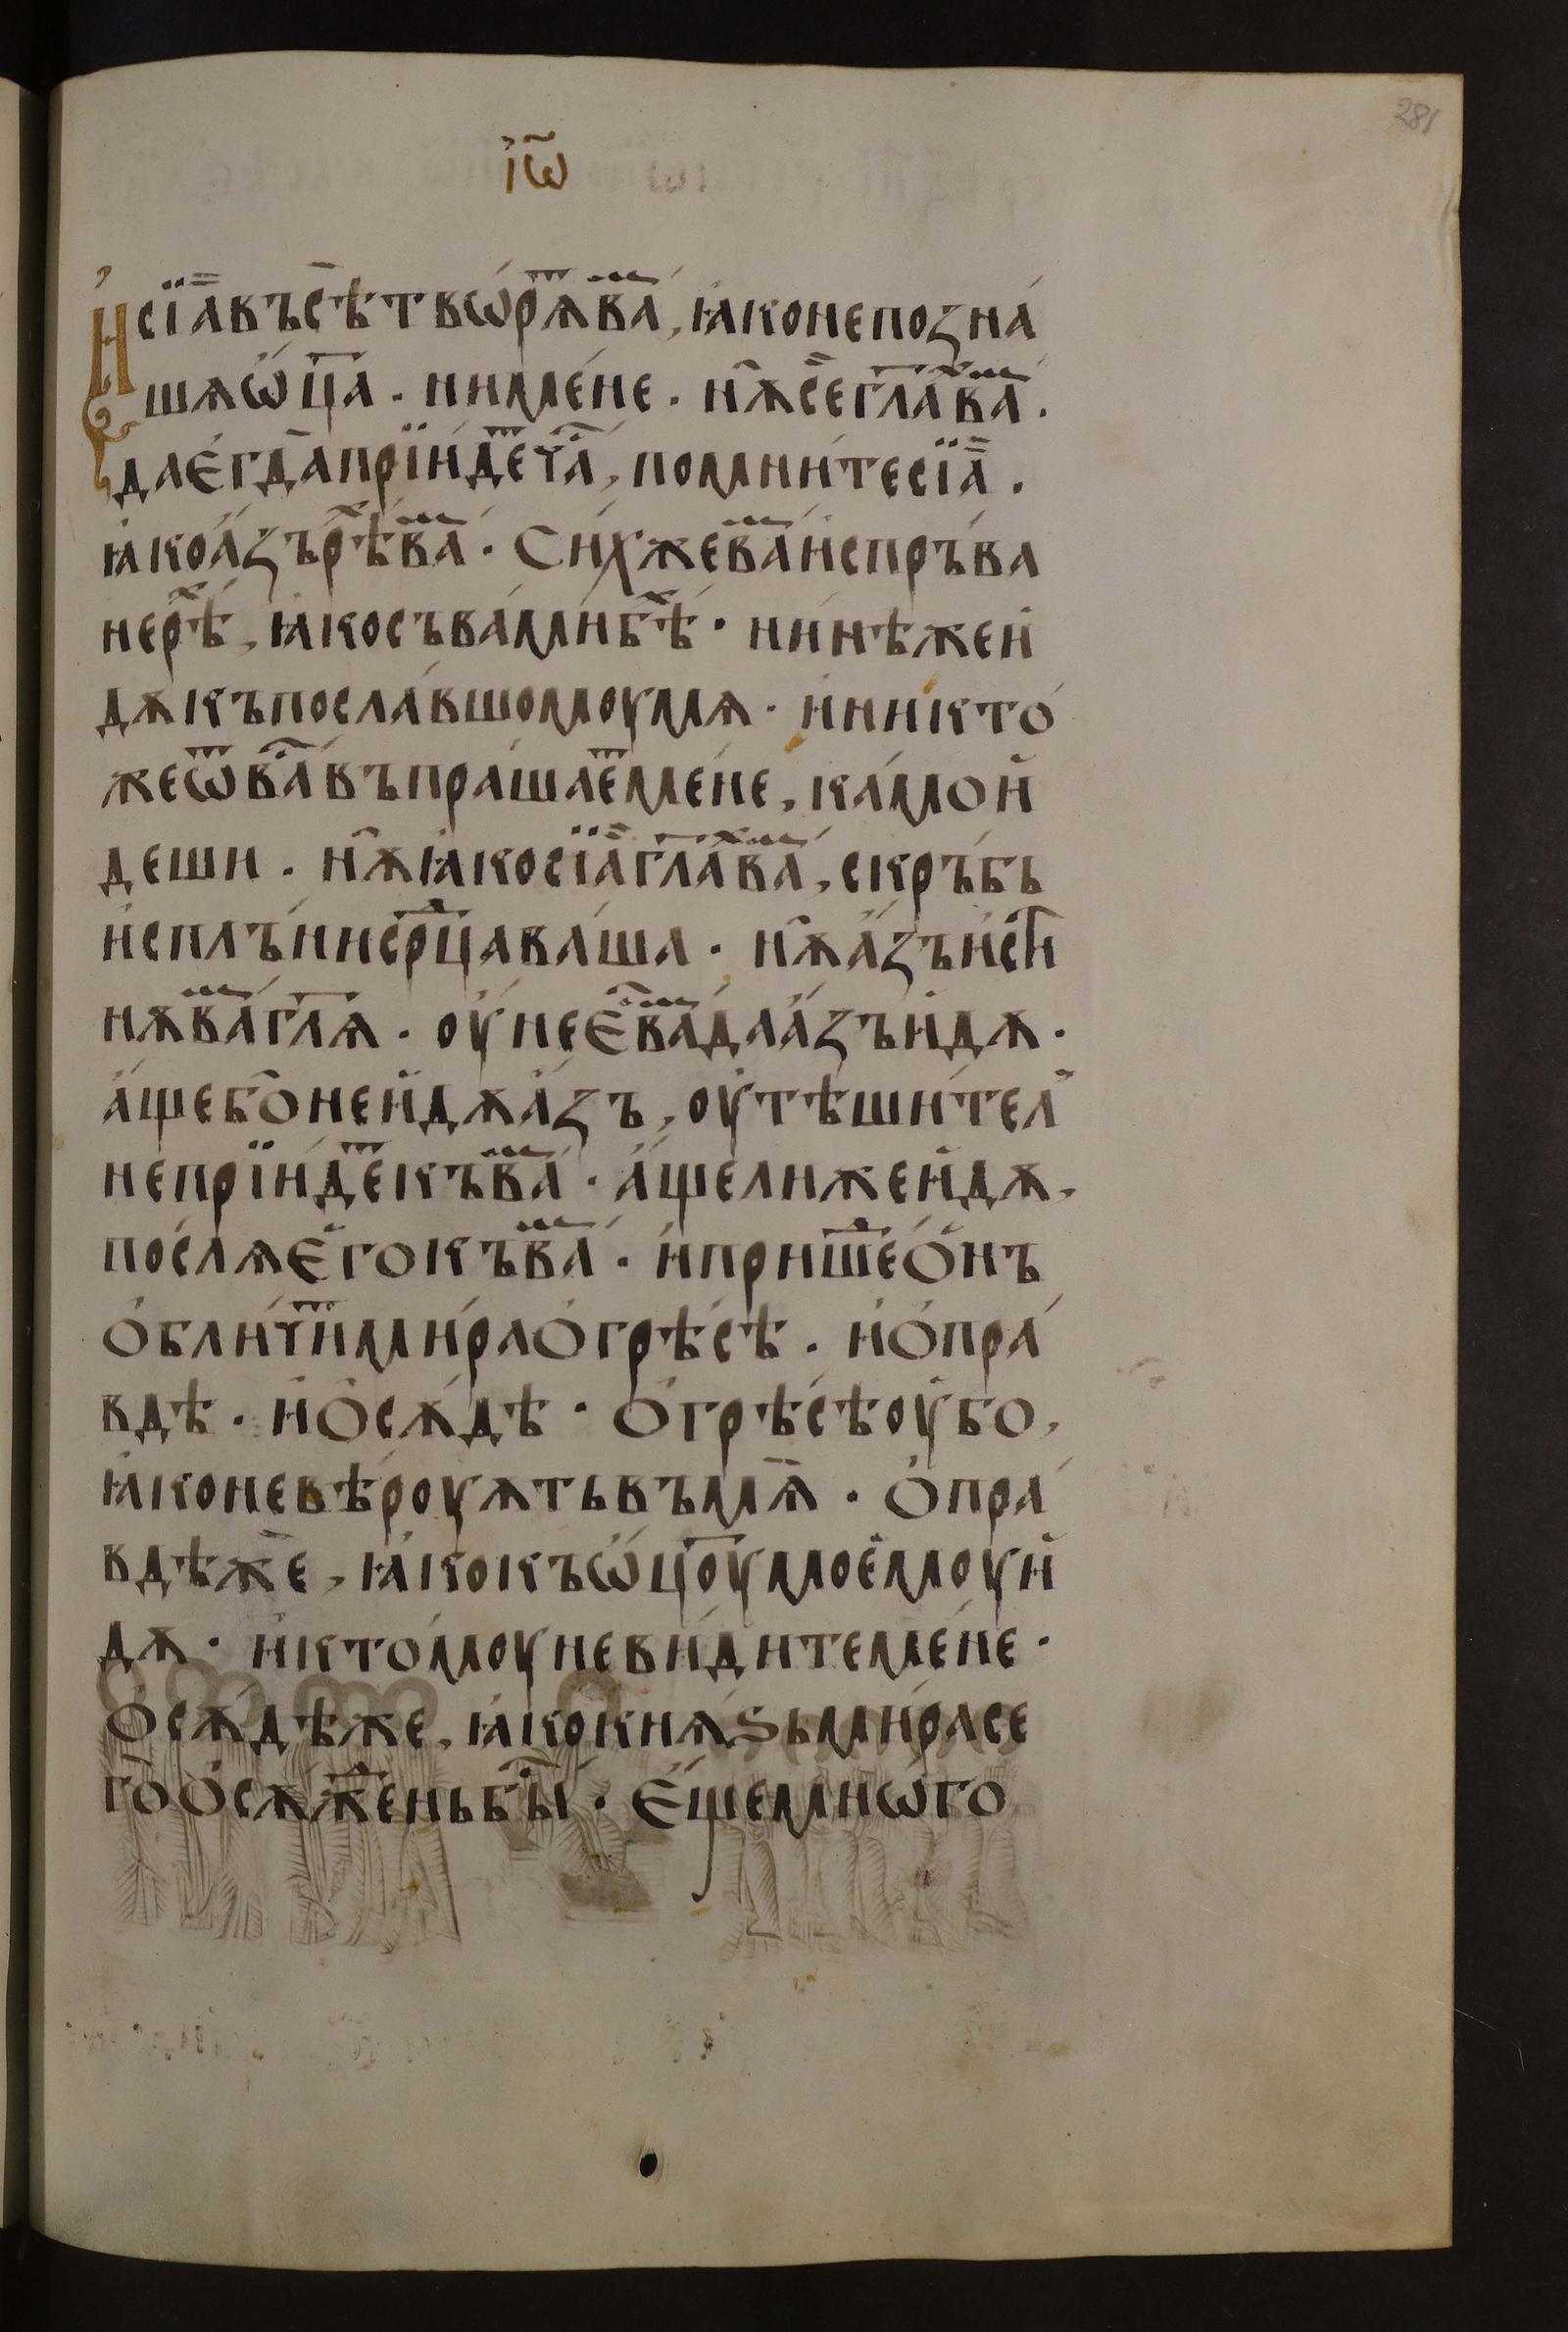 281
і҆ѡ҃
И҆сїа̀ въсѣ̀ твѡ́рѧⷮ ва́ⷨ, ꙗ҆ко не позна́
шѧ ѡ҆ц҃а. ни мене́. нѫ̑ сѐ гл҃аⷯ ва́ⷨ.
да є҆гда̀ прїи́деⷮ ча́ⷭ, помни́те сїа̀.
ꙗ҆ко а҆́зъ рѣⷯ ва́ⷨ. Си́х же ва́ⷨ и҆спръ́ва
не рѣⷯ, ꙗ҆ко съ ва́ми бѣⷯ. ни́нѣ же и҆
дѫ къ посла́вшомоу мѧ. и҆ никто́
же ѿ ва́ⷭ въпраша́еⷮ мене́, ка́мо и҆
деши. нѫ̑ ꙗ҆ко сїа̀ гл҃аⷯ ва́ⷨ, скръ́бь
и҆сплъ́ни срⷣца ва́ша. нѫ̑ а҆́зъ и҆́сти
нѫ ва́ⷨ гл҃ѧ. оу҆не є҆́ⷭ ва́ⷨ да а҆́зъ и҆дѫ.
а҆́ще бо̀ не и҆дѫ а҆́зъ, оу҆тѣши́тел҄
не прїи́деⷮ къ ва́ⷨ. а҆́ще ли же и҆дѫ,
по́слѫ є҆го къ ва́ⷨ. и҆ пришеⷣ о҆́нъ
о҆бличи́ⷮ ми́ра о҆ грѣсѣ́. и҆ о҆ пра́
вдѣ. и҆ о҆ сѫ́дѣ. о҆ грѣсѣ́ оу҆бо,
ꙗ҆ко не вѣ́роуѫть въ мѧ̀. о҆ пра́
вдѣ жѐ, ꙗ҆́ко къ ѡ҆ц҃оу҆ моє҆моу и҆
дѫ. и҆ ктомоу не ви́дите мене́.
о҆ сѫ́дѣ же, ꙗ҆ко кнѧ́ѕь ми́ра се
го̀ о҆сѫжⷣень бы́ⷭ. є҆ще мнѡ́го